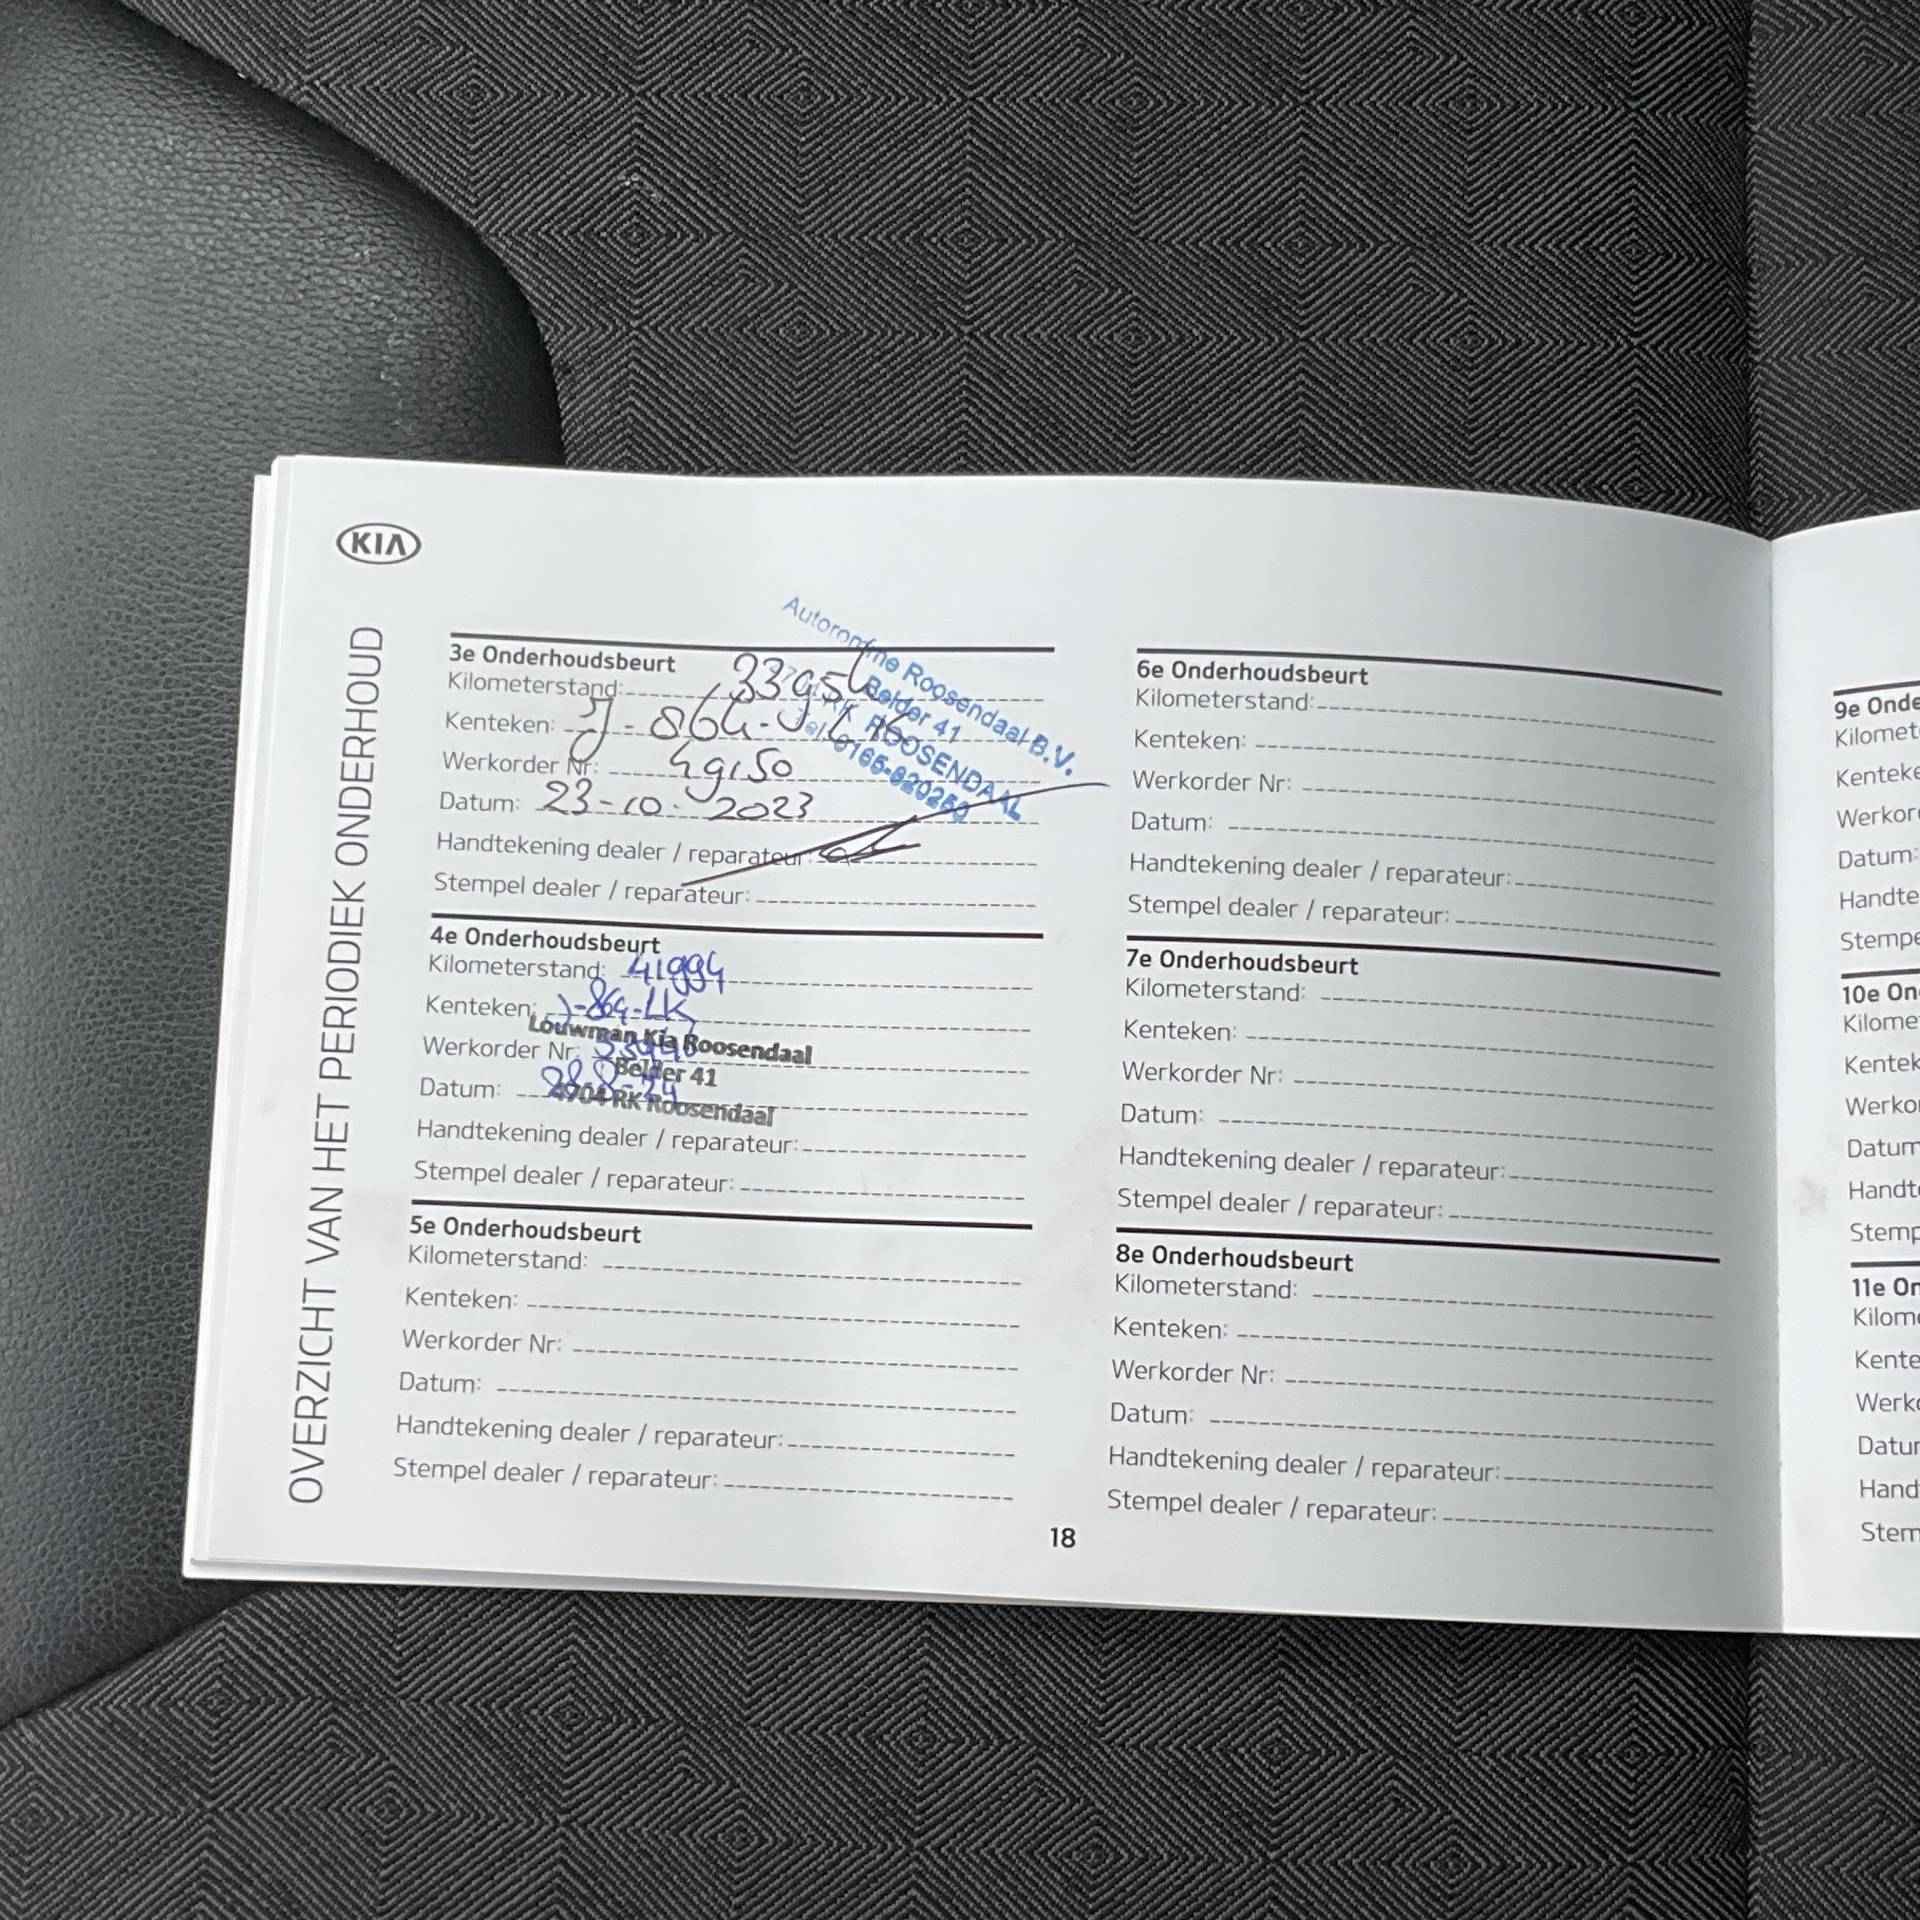 KIA
OVERZICHT VAN HET PERIODIEK ONDERHOUD
3e Onderhoudsbeurt
Kilometerstand: 33954
Kenteken: J-864-
Werkorder Nr: 49150
Datum: 23-10-2023
Handtekening dealer / reparateur:
Stempel dealer / reparateur:
Autoromme Roosendaal B.V.
Belder 41
RK ROOSENDAAL
4e Onderhoudsbeurt
Kilometerstand: 41994
Kenteken: J-864-LK
Werkorder Nr:
Datum:
Louwman Kia Roosendaal
Belder 41
4704 RK Roosendaal
Handtekening dealer / reparateur:
Stempel dealer / reparateur:
5e Onderhoudsbeurt
Kilometerstand:
Kenteken:
Werkorder Nr:
Datum:
Handtekening dealer / reparateur:
Stempel dealer / reparateur:
6e Onderhoudsbeurt
Kilometerstand:
Kenteken:
Werkorder Nr:
Datum:
Handtekening dealer / reparateur:
Stempel dealer / reparateur:
7e Onderhoudsbeurt
Kilometerstand:
Kenteken:
Werkorder Nr:
Datum:
Handtekening dealer / reparateur:
Stempel dealer / reparateur:
8e Onderhoudsbeurt
Kilometerstand:
Kenteken:
Werkorder Nr:
Datum:
Handtekening dealer / reparateur:
Stempel dealer / reparateur:
18
9e Onde
Kilomet
Kenteke
Werkor
Datum:
Handte
Stempe
10e On
Kilome
Kentek
Werko
Datum
Handt
Stemp
11e On
Kilom
Kente
Werk
Datu
Hand
Stem